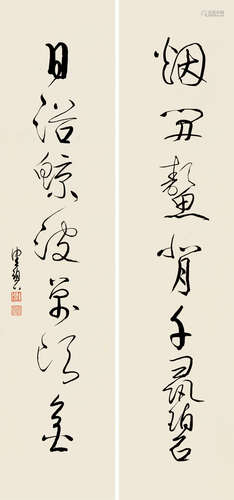 烟开鳌背千寻碧
日浴鲸波万顷金